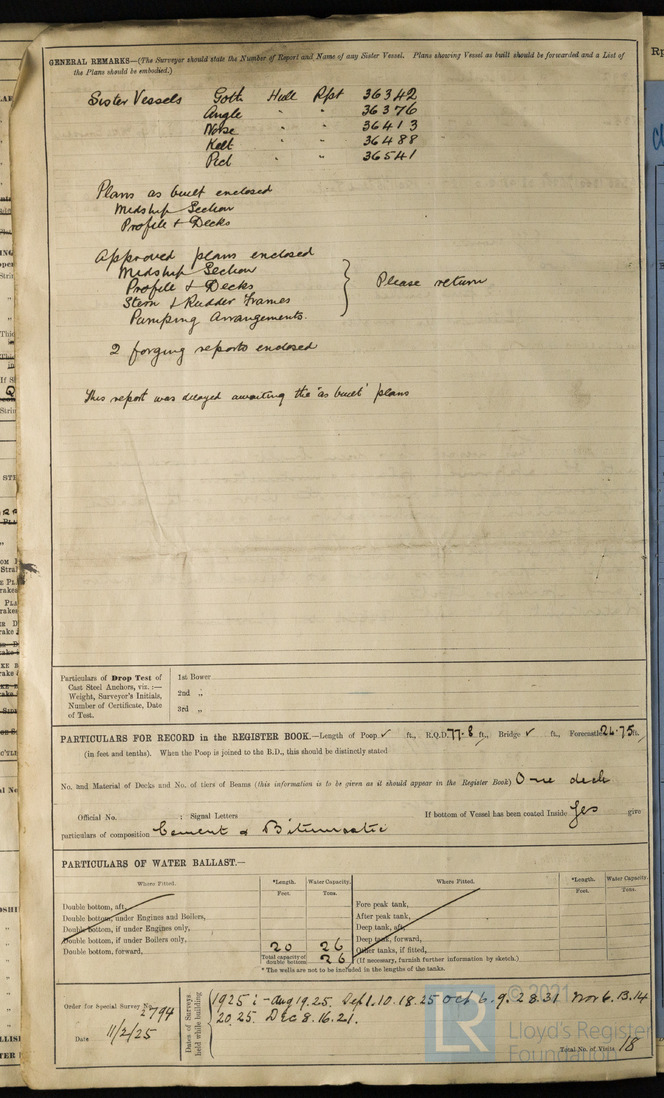 GENERAL REMARKS—(The Surveyor should state the Number of Report and Name of any Sister Vessel. Plans showing Vessel as built should be forwarded and a List of
the Plans should be embodied.)
Sister Vessels Goth Hull Rpt 36342
Angle " " 36376
Norse " " 36413
Kelt " " 36488
Pict " " 36541
Plans as built enclosed
Midship Section
Profile & Decks
Approved plans enclosed
Midship Section
Profile & Decks
Stern & Rudder Frames
Pumping Arrangements.
Please return
2 forging reports enclosed
This report was delayed awaiting the "as built" plans
Particulars of Drop Test of
Cast Steel Anchors, viz. :—
Weight, Surveyor's Initials,
Number of Certificate, Date
of Test.
1st Bower
2nd „
3rd „
PARTICULARS FOR RECORD in the REGISTER BOOK.—Length of Poop ✓ ft., R.Q.D. 77.8 ft., Bridge ✓ ft., Forecastle 24.75 ft.
(in feet and tenths). When the Poop is joined to the B.D., this should be distinctly stated
No. and Material of Decks and No. of tiers of Beams (this information is to be given as it should appear in the Register Book) One deck
Official No. ; Signal Letters If bottom of Vessel has been coated Inside Yes give
particulars of composition Cement & Bitumastic
PARTICULARS OF WATER BALLAST.—
Where Fitted. *Length. Water Capacity. Where Fitted. *Length. Water Capacity.
Feet. Tons. Feet. Tons.
Double bottom, aft, Fore peak tank,
Double bottom, under Engines and Boilers, After peak tank,
Double bottom, if under Engines only, Deep tank, aft,
Double bottom, if under Boilers only, 20 26 Deep tank, forward,
Double bottom, forward, Total capacity of double bottom 26 Other tanks, if fitted,
(If necessary, furnish further information by sketch.)
* The wells are not to be included in the lengths of the tanks.
Order for Special Survey No. 2794
Date 11/2/25
Dates of Surveys held while building
1925 :- Aug 19. 25. Sept 1. 10. 18. 25 Oct 6. 9. 28. 31 Nov 6. 13. 14
20. 25. Dec 8. 16. 21.
Total No. of Visits 18
© 2021
LR
Lloyd's Register
Foundation